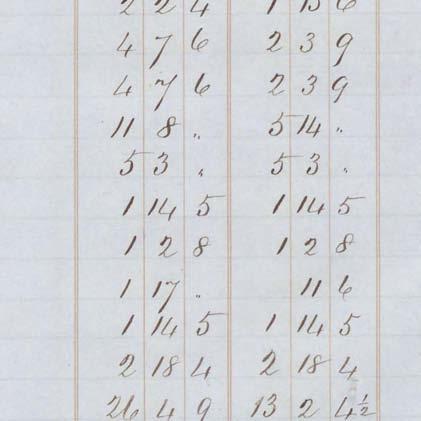 2 2 4 1 13 6
4 7 6 2 3 9
4 7 6 2 3 9
11 8 " 5 14 "
5 3 " 5 3 "
1 14 5 1 14 5
1 2 8 1 2 8
1 17 " 11 6
1 14 5 1 14 5
2 18 4 2 18 4
26 4 9 13 2 4½